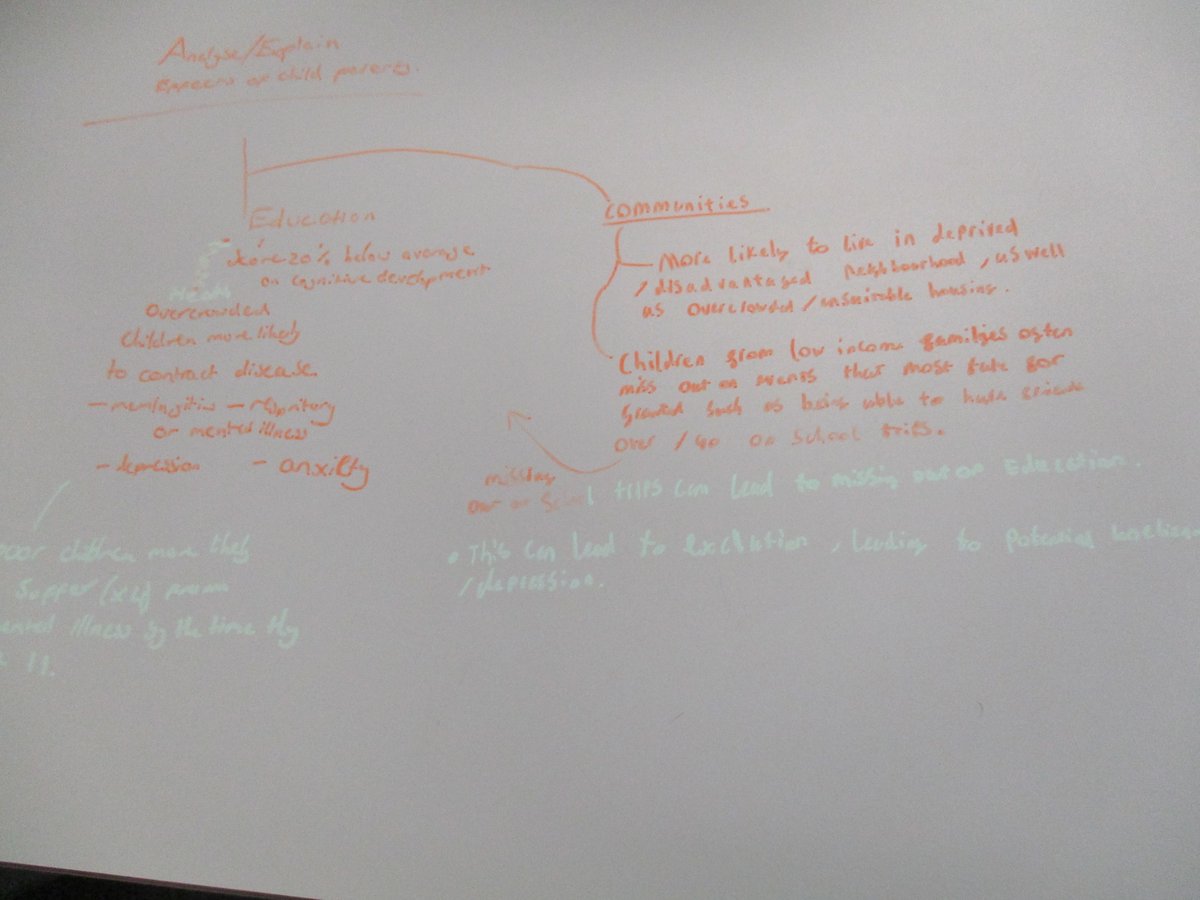 Analyse/Explain
Effects of child poverty.
Education
Score 20% below average
on cognitive development
Health
Overcrowded
Children more likely
to contract disease
- meningitis - respritory
or mental illness
- depression - anxiety
poor children more likely
suffer (x4) from
mental illness by the time they
11.
Communities
- More likely to live in deprived
/ disadvantaged neighbourhood, as well
as overcrowded / unsuitable housing.
Children from low income families often
miss out on events that most take for
granted such as being able to have friends
over / go on school trips.
missing
out on school trips can lead to missing out on Education.
• This can lead to exclusion, leading to potential
/depression.